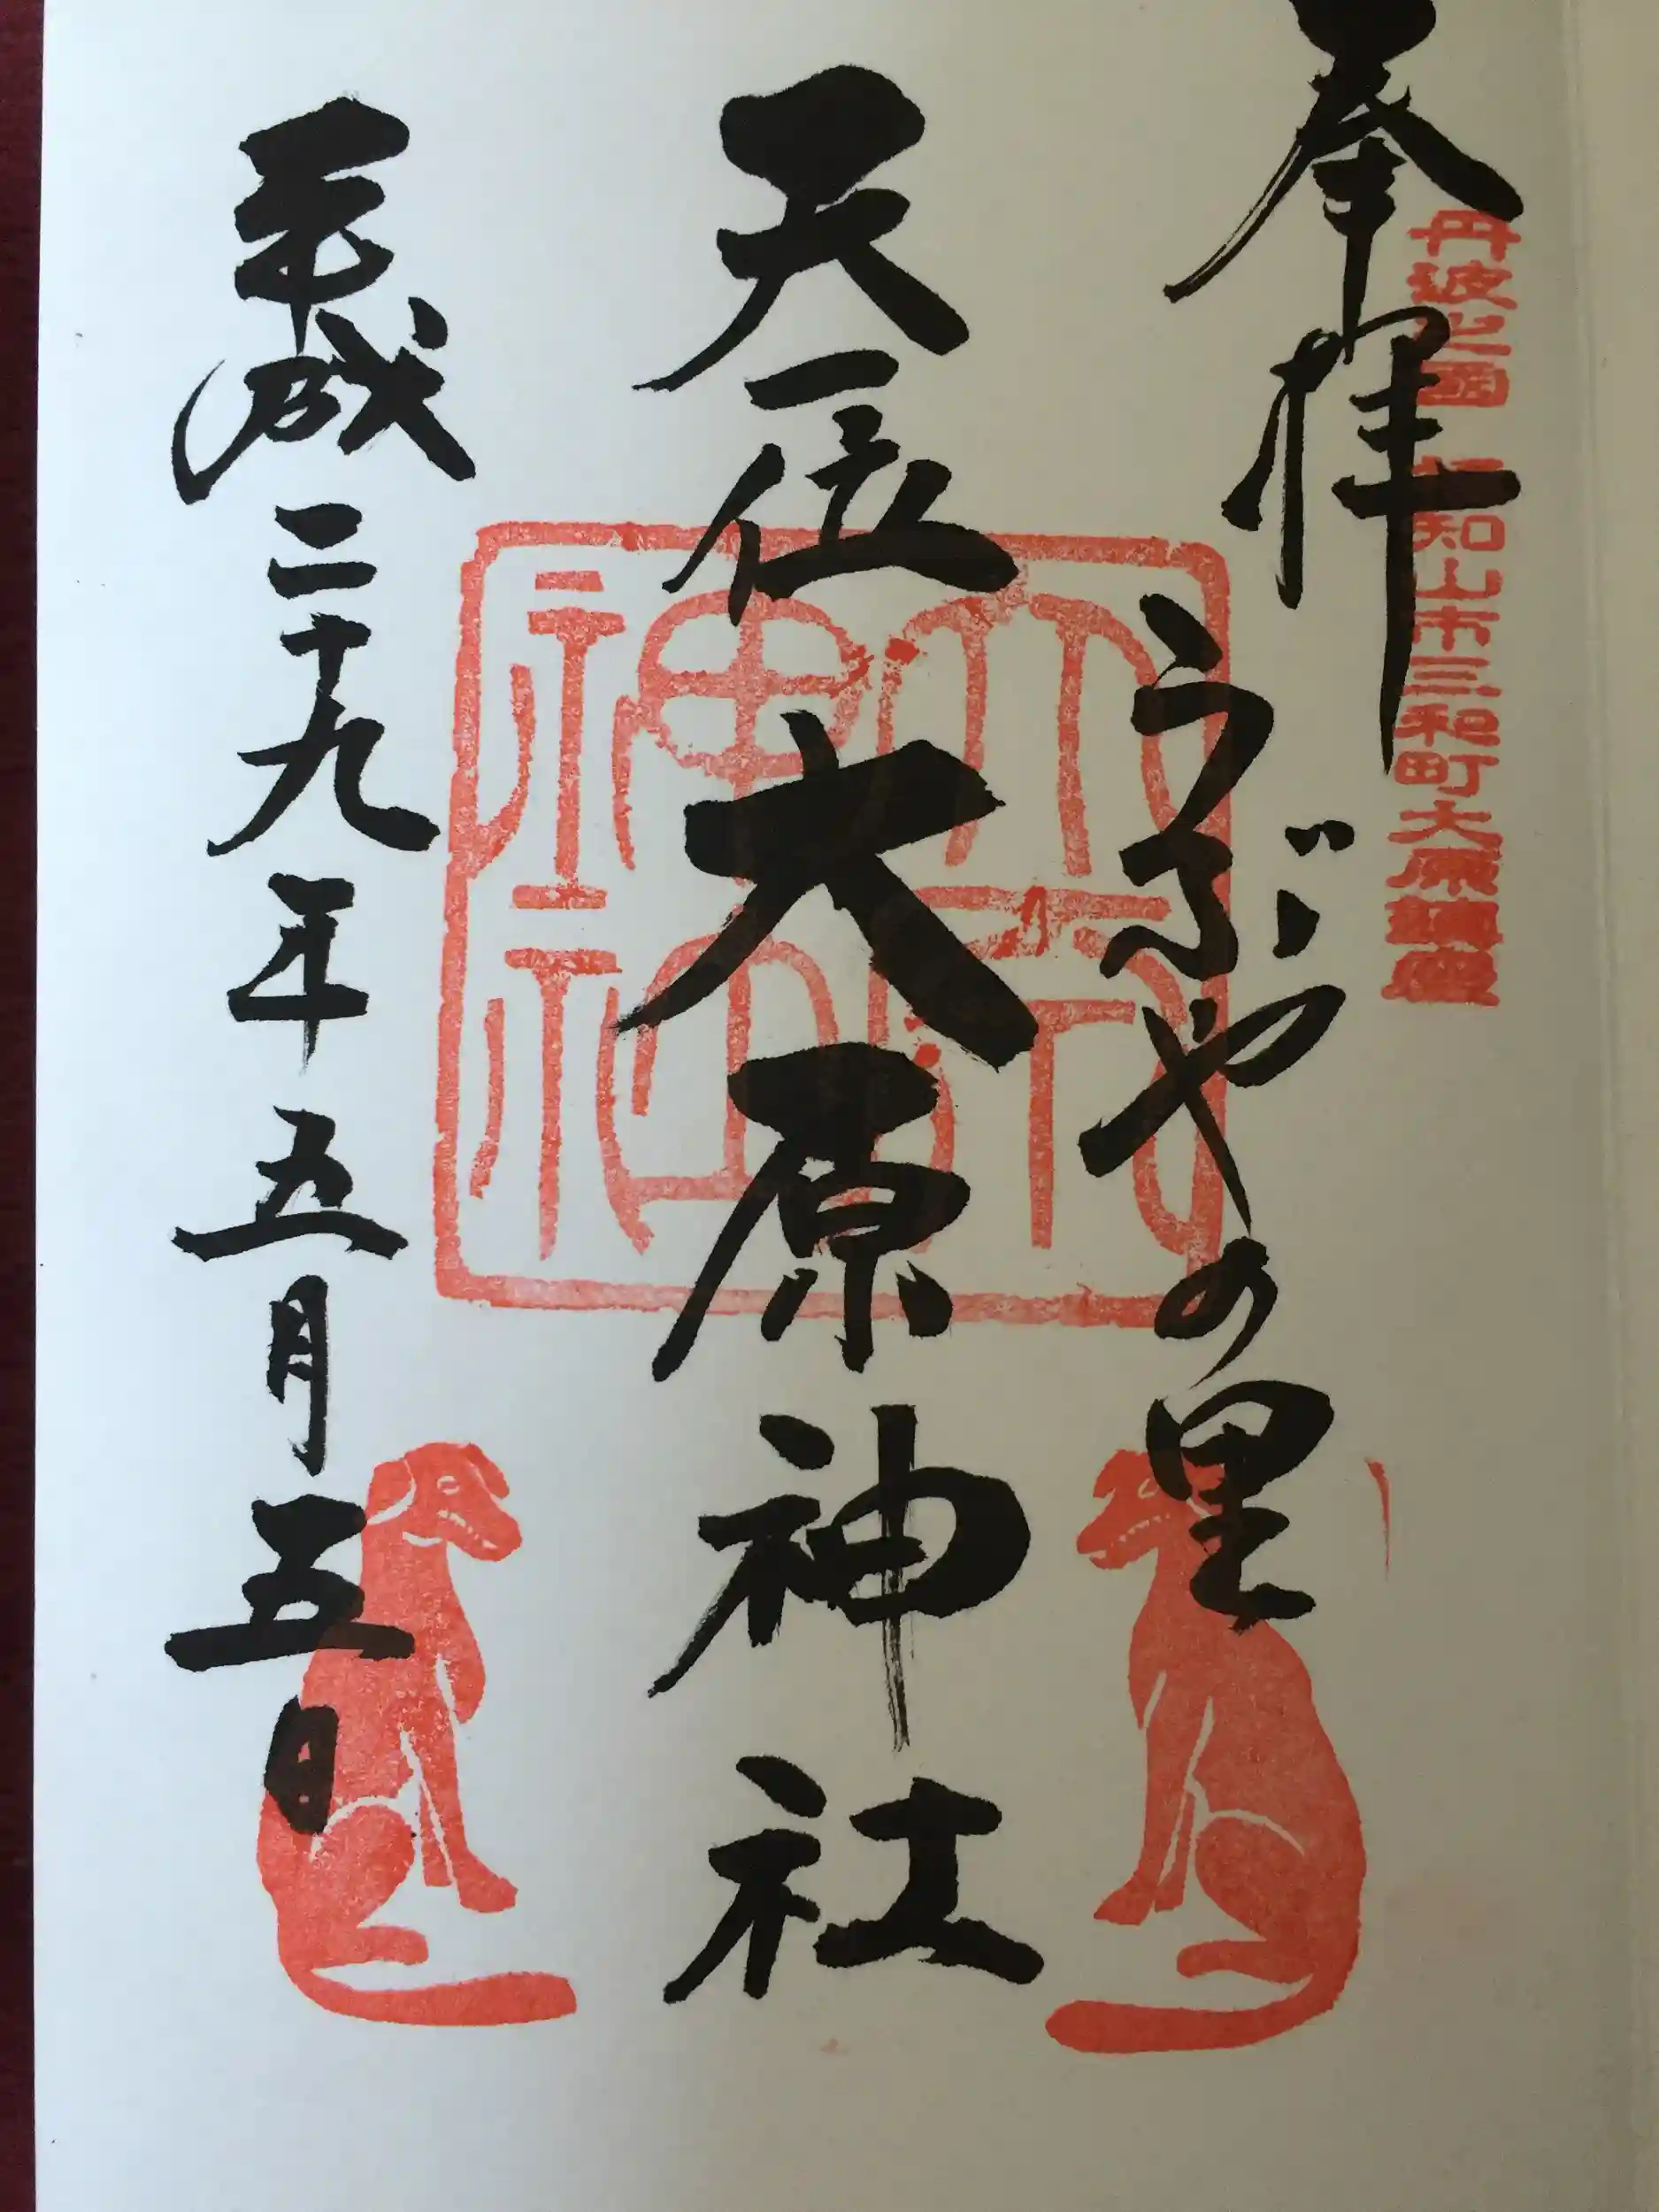 丹波之国 福知山市三和町大原鎮座
奉拝
うぶやの里
天一位大原神社
大原
神社
平成二十九年五月五日